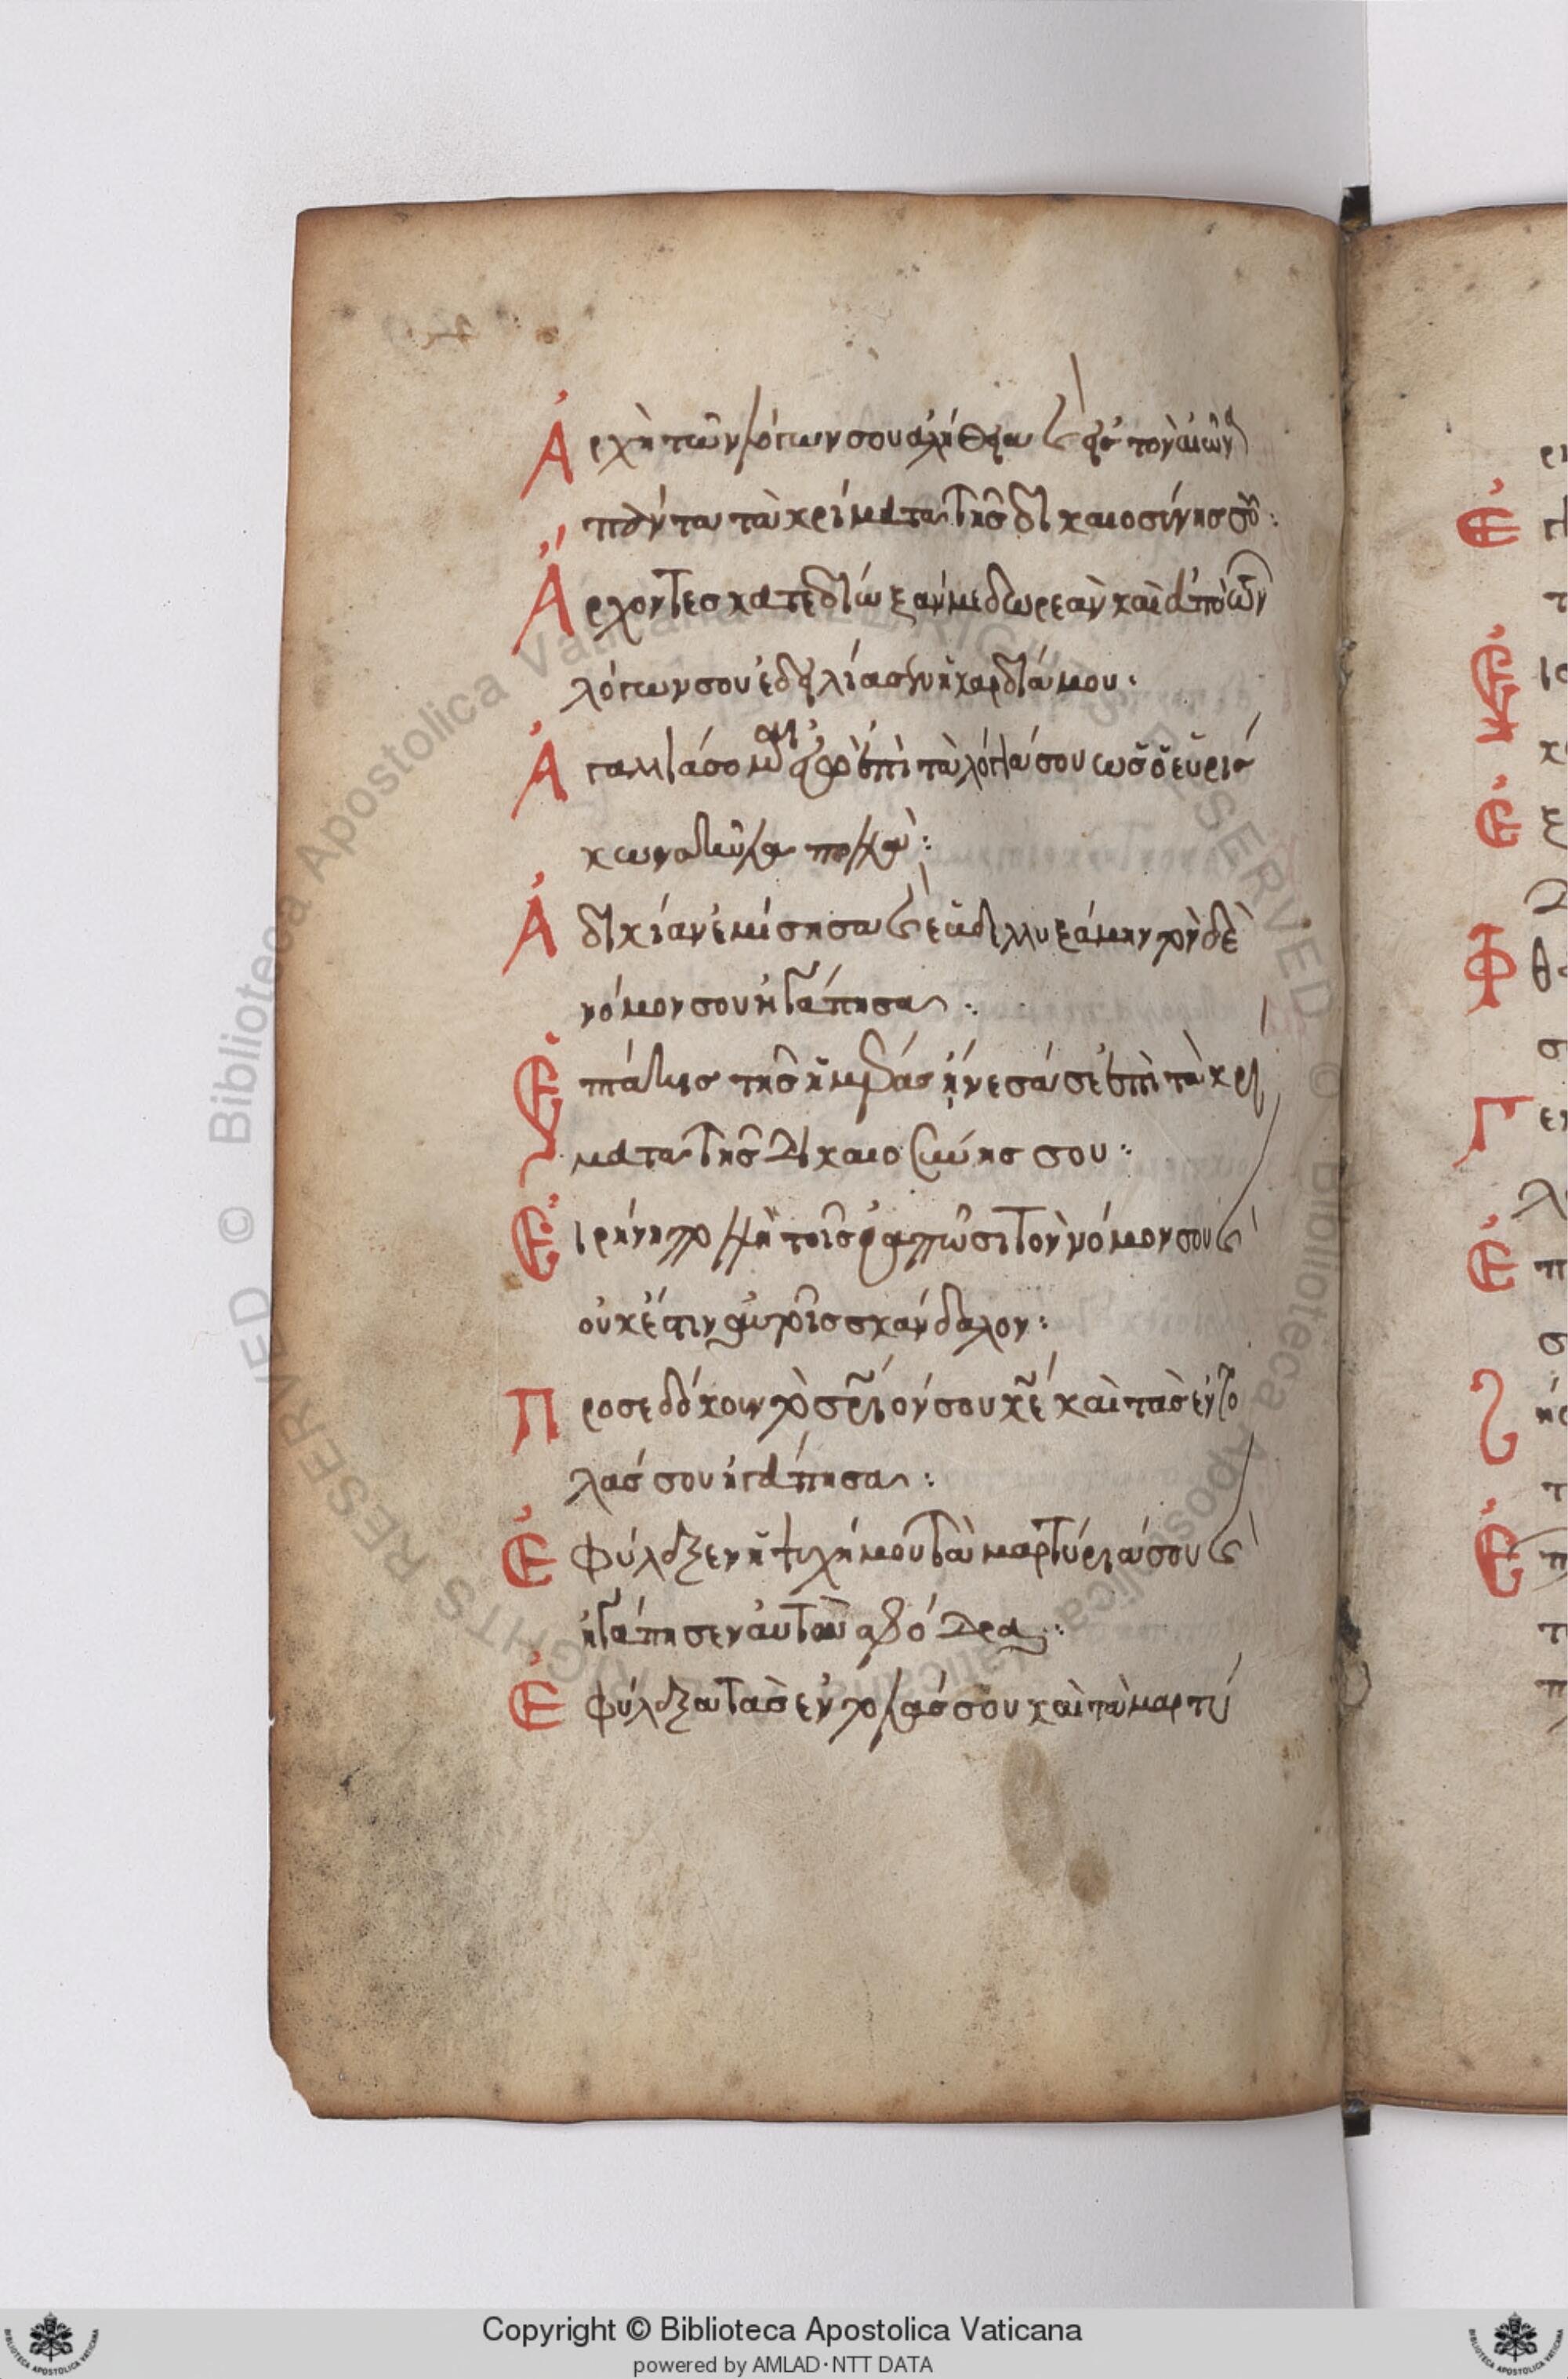 Ἀρχὴ τῶν λόγων σου ἀλήθεια καὶ εἰς τὸν αἰῶνα
πάντα τὰ κρίματα τῆς δικαιοσύνης σου:
Ἄρχοντες κατεδίωξάν με δωρεὰν καὶ ἀπὸ τῶν
λόγων σου ἐδειλίασεν ἡ καρδία μου:
Ἀγαλλιάσομαι ἐγὼ ἐπὶ τὰ λόγιά σου ὡς ὁ εὑρίσ
κων σκῦλα πολλά:
Ἀδικίαν ἐμίσησα καὶ ἐβδελυξάμην τὸν δὲ
νόμον σου ἠγάπησα:
Ἑπτάκις τῆς ἡμέρας ᾔνεσά σε ἐπὶ τὰ κρί
ματα τῆς δικαιοσύνης σου:
Εἰρήνη πολλὴ τοῖς ἀγαπῶσι τὸν νόμον σου καὶ
οὐκ ἔστιν αὐτοῖς σκάνδαλον:
Προσεδόκων τὸ σ̅ρ̅ιόν σου κ̅ε̅ καὶ τὰς ἐντο
λάς σου ἠγάπησα:
Ἐφύλαξεν ἡ ψυχή μου τὰ μαρτύριά σου καὶ
ἠγάπησεν αὐτὰ σφόδρα:
Ἐφύλαξα τὰς ἐντολάς σου καὶ τὰ μαρτύ
Copyright © Biblioteca Apostolica Vaticana
powered by AMLAD·NTT DATA